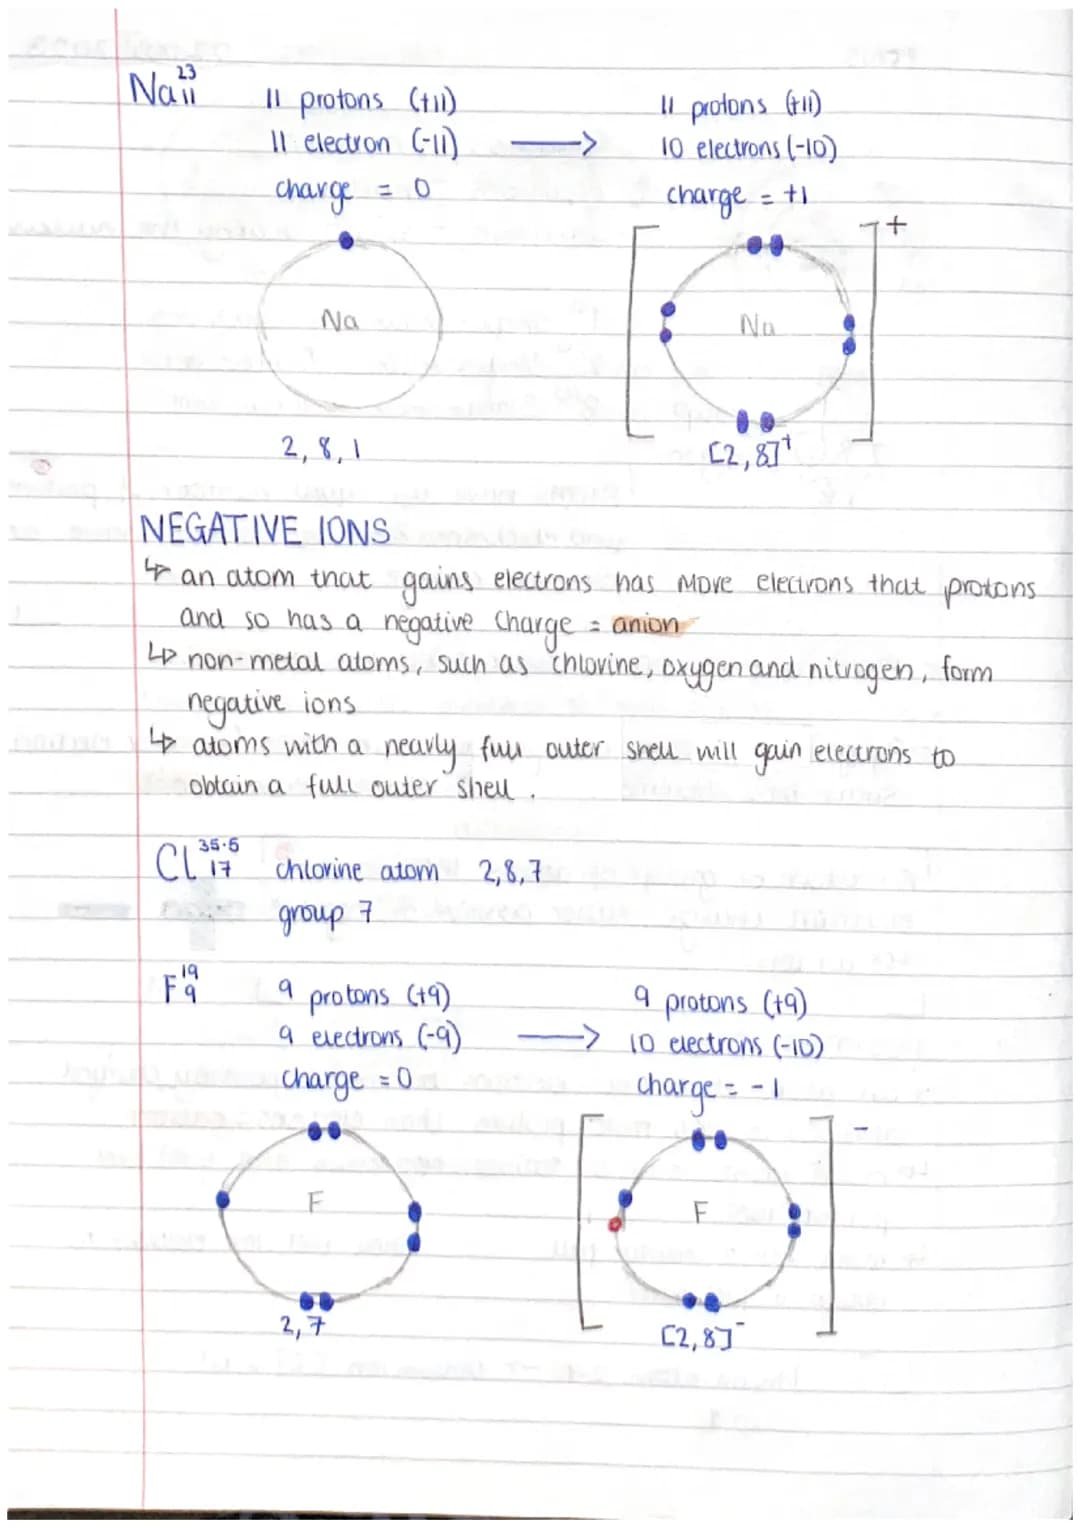 Na 23 11
11 protons (+11)
11 electron (-11)
charge = 0
→
11 protons (+11)
10 electrons (-10)
charge = +1
Na
2, 8, 1
Na
+
[2, 8]⁺
NEGATIVE IONS
↳ an atom that gains electrons has more electrons that protons
and so has a negative charge = anion
↳ non-metal atoms, such as chlorine, oxygen and nitrogen, form
negative ions
↳ atoms with a nearly full outer shell will gain electrons to
obtain a full outer shell.
Cl 35.5 17 chlorine atom 2,8,7
group 7
F 19 9
9 protons (+9)
9 electrons (-9)
charge = 0
→
9 protons (+9)
10 electrons (-10)
charge = -1
F
2, 7
F
-
[2, 8]⁻